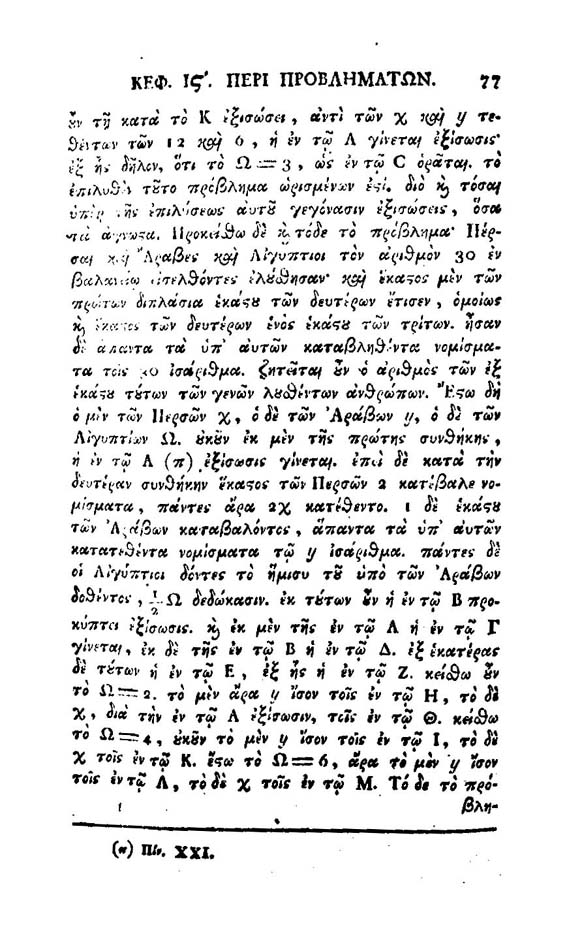 ΚΕΦ. ΙϚ'. ΠΕΡΙ ΠΡΟΒΛΗΜΑΤΩΝ. 77
ἦν τῇ κατὰ τὸ Κ ἐξισώσει, ἀντὶ τῶν χ καὶ y τε-
θέντων τῶν 12 καὶ 6, ἡ ἐν τῷ Λ γίνεται ἐξίσωσις·
ἐξ ἧς δῆλον, ὅτι τὸ Ω = 3, ὡς ἐν τῷ C ὁρᾶται. τὸ
ἐπιλυθὲν τοῦτο πρόβλημα ὡρισμένων ἐστί. διὸ καὶ τόσαι
ὑπὲρ τῆς ἐπιλύσεως αὐτοῦ γεγόνασιν ἐξισώσεις, ὅσα
τὰ ἄγνωστα. Προκείσθω δὲ καὶ τόδε τὸ πρόβλημα· Πέρ-
σαι καὶ Ἄραβες καὶ Αἰγύπτιοι τὸν ἀριθμὸν 30 ἐν
βαλανείῳ εἰσελθόντες ἐλούθησαν· καὶ ἕκαστος μὲν τῶν
πρώτων διπλάσια ἑκάστου τῶν δευτέρων ἔτισεν, ὁμοίως
καὶ ἕκαστος τῶν δευτέρων ἑνὸς ἑκάστου τῶν τρίτων. ἦσαν
δὲ ἅπαντα τὰ ὑπ' αὐτῶν καταβληθέντα νομίσμα-
τα τοῖς 30 ἰσάριθμα. ζητεῖται οὖν ὁ ἀριθμὸς τῶν ἐξ
ἑκάστου τούτων τῶν γενῶν λουθέντων ἀνθρώπων. Ἔστω δὴ
ὁ μὲν τῶν Περσῶν χ, ὁ δὲ τῶν Ἀράβων y, ὁ δὲ τῶν
Αἰγυπτίων Ω. οὐκοῦν ἐκ μὲν τῆς πρώτης συνθήκης,
ἡ ἐν τῷ Α (π) ἐξίσωσις γίνεται. ἐπεὶ δὲ κατὰ τὴν
δευτέραν συνθήκην ἕκαστος τῶν Περσῶν 2 κατέβαλε νο-
μίσματα, πάντες ἄρα 2χ κατέθεντο. 1 δὲ ἑκάστου
τῶν Ἀράβων καταβαλόντος, ἅπαντα τὰ ὑπ' αὐτῶν
κατατεθέντα νομίσματα τῷ y ἰσάριθμα. πάντες δὲ
οἱ Αἰγύπτιοι δόντες τὸ ἥμισυ τοῦ ὑπὸ τῶν Ἀράβων
δοθέντος, ½Ω δεδώκασιν. ἐκ τούτων οὖν ἡ ἐν τῷ Β προ-
κύπτει ἐξίσωσις. καὶ ἐκ μὲν τῆς ἐν τῷ Α ἡ ἐν τῷ Γ
γίνεται, ἐκ δὲ τῆς ἐν τῷ Β ἡ ἐν τῷ Δ. ἐξ ἑκατέρας
δὲ τούτων ἡ ἐν τῷ Ε, ἐξ ἧς ἡ ἐν τῷ Ζ. κείσθω οὖν
τὸ Ω = 2. τὸ μὲν ἄρα y ἴσον τοῖς ἐν τῷ Η, τὸ δὲ
χ, διὰ τὴν ἐν τῷ Α ἐξίσωσιν, τοῖς ἐν τῷ Θ. κείσθω
τὸ Ω = 4, οὐκοῦν τὸ μὲν y ἴσον τοῖς ἐν τῷ Ι, τὸ δὲ
χ τοῖς ἐν τῷ Κ. ἔστω τὸ Ω = 6, ἄρα τὸ μὲν y ἴσον
τοῖς ἐν τῷ Λ, τὸ δὲ χ τοῖς ἐν τῷ Μ. Τόδε τὸ πρό-
βλη-
(π) Πίν. XXI.